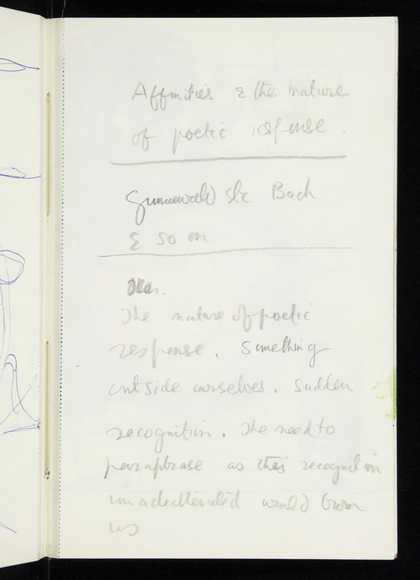 Affinities & the nature
of poetic response.
Grunewald etc Bach
& so on
The nature of poetic
response. Something
outside ourselves. Sudden
recognition. The need to
paraphrase as this recognition
would
us